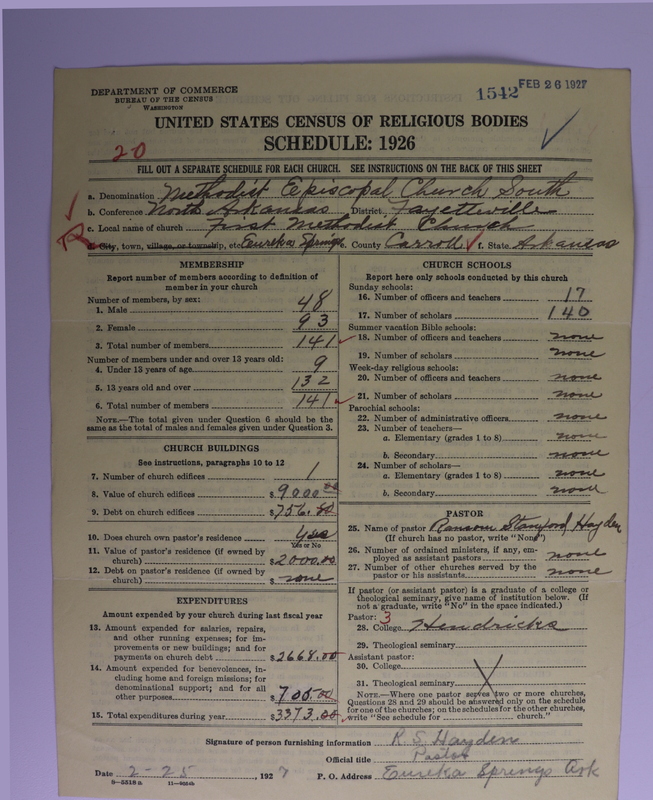 DEPARTMENT OF COMMERCE
BUREAU OF THE CENSUS
WASHINGTON
1542 FEB 26 1927
UNITED STATES CENSUS OF RELIGIOUS BODIES
SCHEDULE: 1926
20
FILL OUT A SEPARATE SCHEDULE FOR EACH CHURCH. SEE INSTRUCTIONS ON THE BACK OF THIS SHEET
a. Denomination Methodist Episcopal Church South
b. Conference North Arkansas District Fayetteville
c. Local name of church First Methodist Church
d. City, town, village, or township, etc Eureka Springs County Carroll f. State Arkansas
MEMBERSHIP
Report number of members according to definition of
member in your church
Number of members, by sex:
1. Male 48
2. Female 93
3. Total number of members 141
Number of members under and over 13 years old:
4. Under 13 years of age 9
5. 13 years old and over 132
6. Total number of members 141
NOTE.—The total given under Question 6 should be the
same as the total of males and females given under Question 3.
CHURCH BUILDINGS
See instructions, paragraphs 10 to 12
7. Number of church edifices 1
8. Value of church edifices $9000.00
9. Debt on church edifices $756.50
10. Does church own pastor's residence Yes
Yes or No
11. Value of pastor's residence (if owned by
church) $2000.00
12. Debt on pastor's residence (if owned by
church) $none
EXPENDITURES
Amount expended by your church during last fiscal year
13. Amount expended for salaries, repairs,
and other running expenses; for im-
provements or new buildings; and for
payments on church debt $2668.00
14. Amount expended for benevolences, in-
cluding home and foreign missions; for
denominational support; and for all
other purposes $705.00
15. Total expenditures during year $3373.00
CHURCH SCHOOLS
Report here only schools conducted by this church
Sunday schools:
16. Number of officers and teachers 17
17. Number of scholars 140
Summer vacation Bible schools:
18. Number of officers and teachers none
19. Number of scholars none
Week-day religious schools:
20. Number of officers and teachers none
21. Number of scholars none
Parochial schools:
22. Number of administrative officers none
23. Number of teachers—
a. Elementary (grades 1 to 8) none
b. Secondary none
24. Number of scholars—
a. Elementary (grades 1 to 8) none
b. Secondary none
PASTOR
25. Name of pastor Ransom Hayden
(If church has no pastor, write "None")
26. Number of ordained ministers, if any, em-
ployed as assistant pastors none
27. Number of other churches served by the
pastor or his assistants none
If pastor (or assistant pastor) is a graduate of a college or
theological seminary, give name of institution below. (If
not a graduate, write "No" in the space indicated.)
Pastor: 3
28. College Hendricks
29. Theological seminary
Assistant pastor:
30. College
31. Theological seminary
NOTE.—Where one pastor serves two or more churches,
Questions 28 and 29 should be answered only on the schedule
for one of the churches; on the schedules for the other churches,
write "See schedule for church."
Signature of person furnishing information R S Hayden
Official title Pastor
Date 2-25, 1927 P. O. Address Eureka Springs Ark